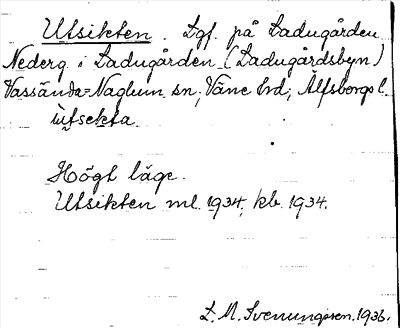 Utsikten. Lgf. på Ladugården
Nederg. i Ladugården (Ladugårdsbyn)
Vassända=Naglum sn; Väne hd; Älfsborgs l.
ùtsekta
Högt läge.
Utsikten ml. 1934; kb. 1934.
L. M. Svenungsson. 1936.